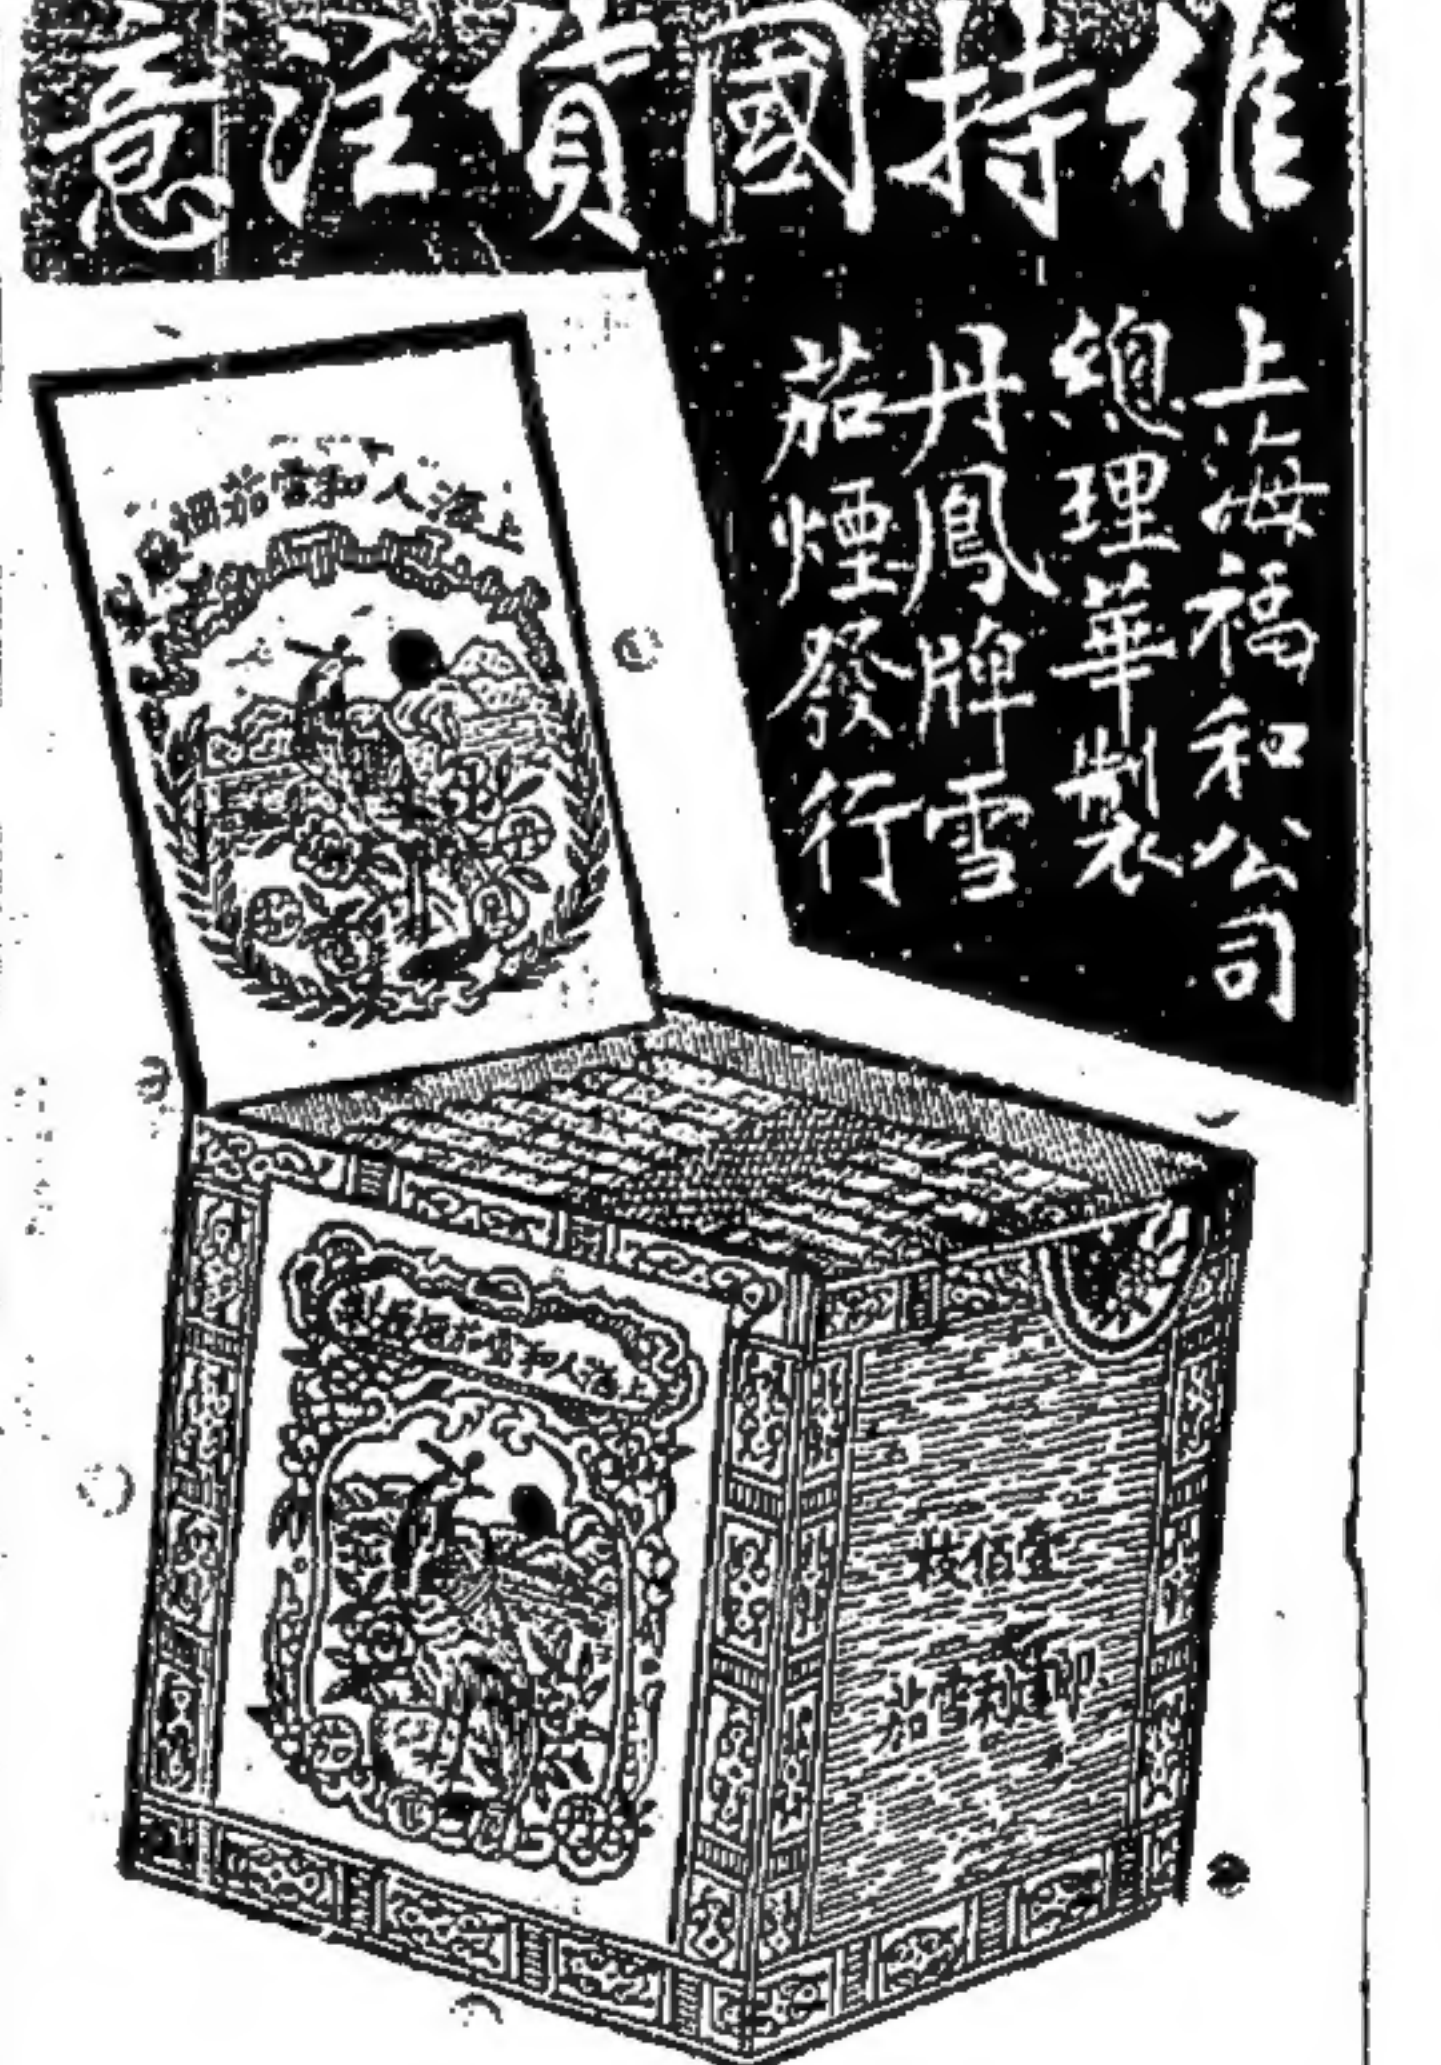 維持國貨注意
上海福和公司
總理華製
丹鳳牌雪
茄煙發行
上海人和雪茄烟
上海人和雪茄烟
壹佰枝